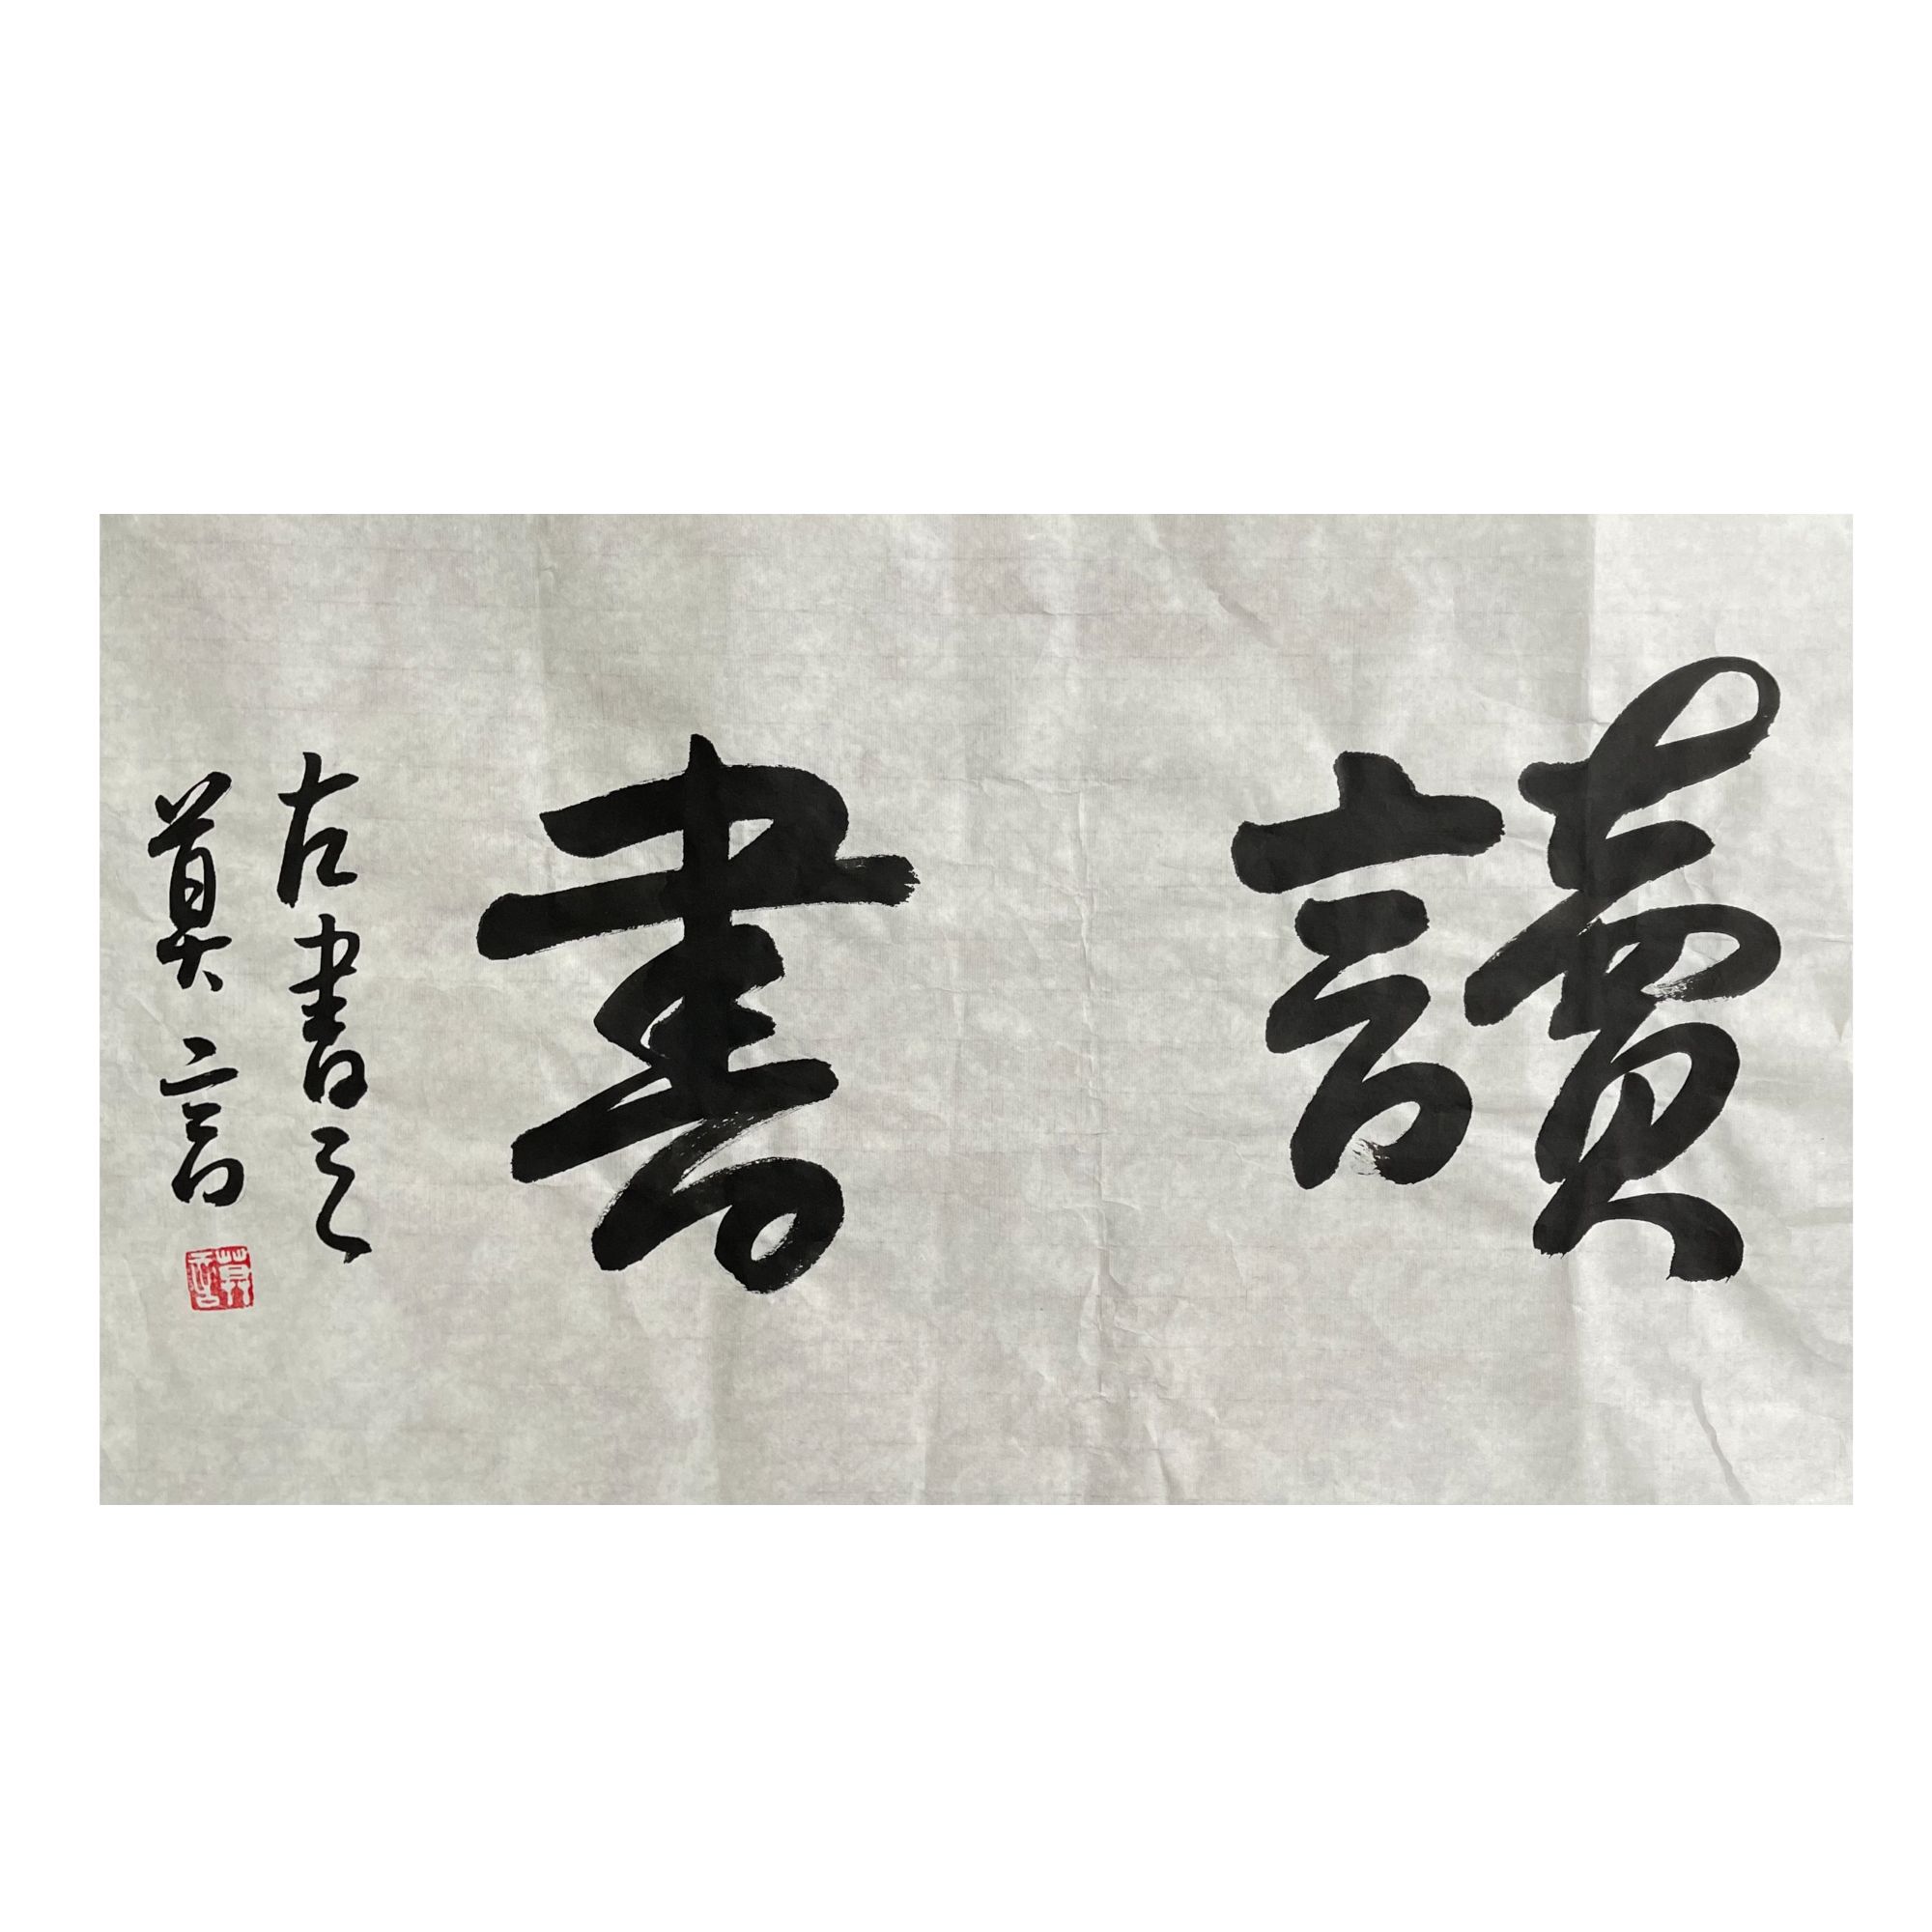 讀書
左書之
莫言
莫言